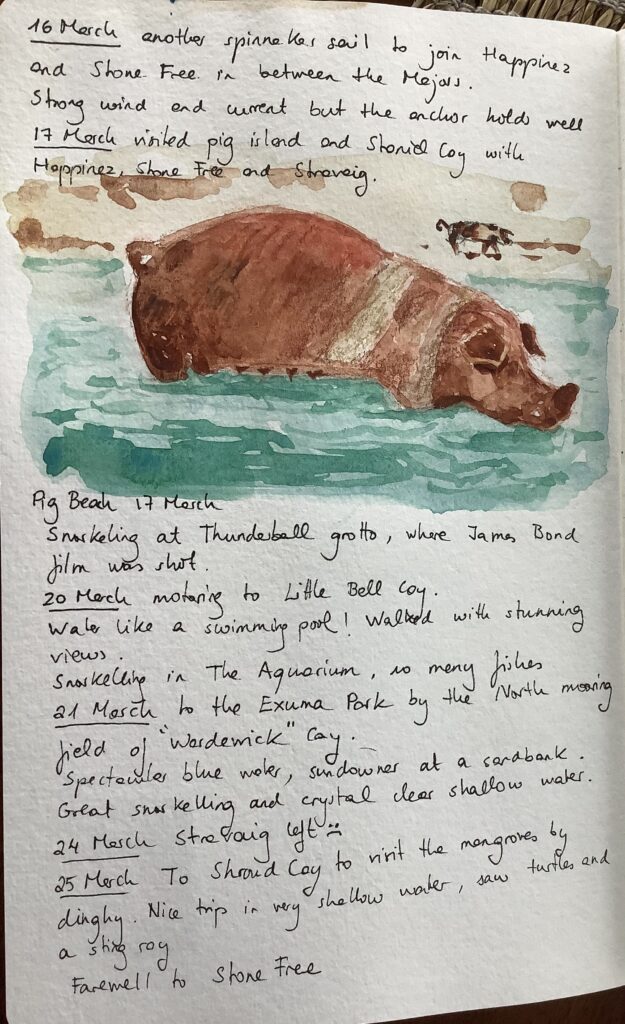 16 March another spinnaker sail to join Happinez
and Stone Free in between the Majors.
Strong wind and current but the anchor holds well
17 March visited pig island and Staniel Cay with
Happinez, Stone Free and Stravaig.
Pig Beach 17 March
Snorkeling at Thunderball grotto, where James Bond
film was shot.
20 March motoring to Little Bell Cay.
Water like a swimming pool! Walked with stunning
views.
Snorkelling in The Aquarium, so many fishes
21 March to the Exuma Park by the North mooring
field of "Wardewick" Cay.
Spectacular blue water, sundowner at a sandbank.
Great snorkelling and crystal clear shallow water.
24 March Stravaig left ☹
25 March To Shroud Cay to visit the mangroves by
dinghy. Nice trip in very shallow water, saw turtles and
a sting ray
Farewell to Stone Free